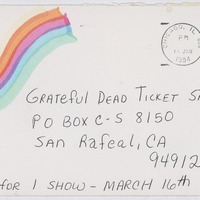 CHICAGO, IL
PM
1984
GRATEFUL DEAD TICKET S
PO BOX C-S 8150
SAN RAFEAL, CA
94912
FOR 1 SHOW - MARCH 16th